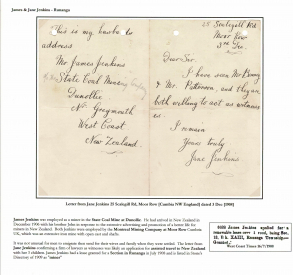 James & Jane Jenkins - Runanga
This is my husbands
address
Mr James Jenkins
State Coal Mine
Dunollie
Nr Greymouth
West Coast
New Zealand.
25 Scalegill Rd
Moor Row
3rd Dec.
Dear Sir.
I have seen Mr Penny
& Mr. Patterson, and they are
both willing to act as witness
es.
I remain
Yours truly
Jane Jenkins
Letter from Jane Jenkins 25 Scalegill Rd, Moor Row (Cumbria NW England) dated 3 Dec [1908]
James Jenkins was employed as a miner in the State Coal Mine at Dunollie. He had arrived in New Zealand in
December 1906 with his brother John in response to the extensive advertising and promotion of a better life for
miners in New Zealand. Both Jenkins were employed by the Montreal Mining Company at Moor Row Cumbria
UK, which was an extensive iron mine with open cast and shafts.
It was not unusual for men to emigrate then send for their wives and family when they were settled. The letter from
Jane Jenkins confirming a firm of lawyers as witnesses was likely an application for assisted travel to New Zealand
with her children. James Jenkins had a lease granted for a Section in Runanga in July 1908 and is listed in Stone's
Directory of 1909 as "miner"
West Coast Times